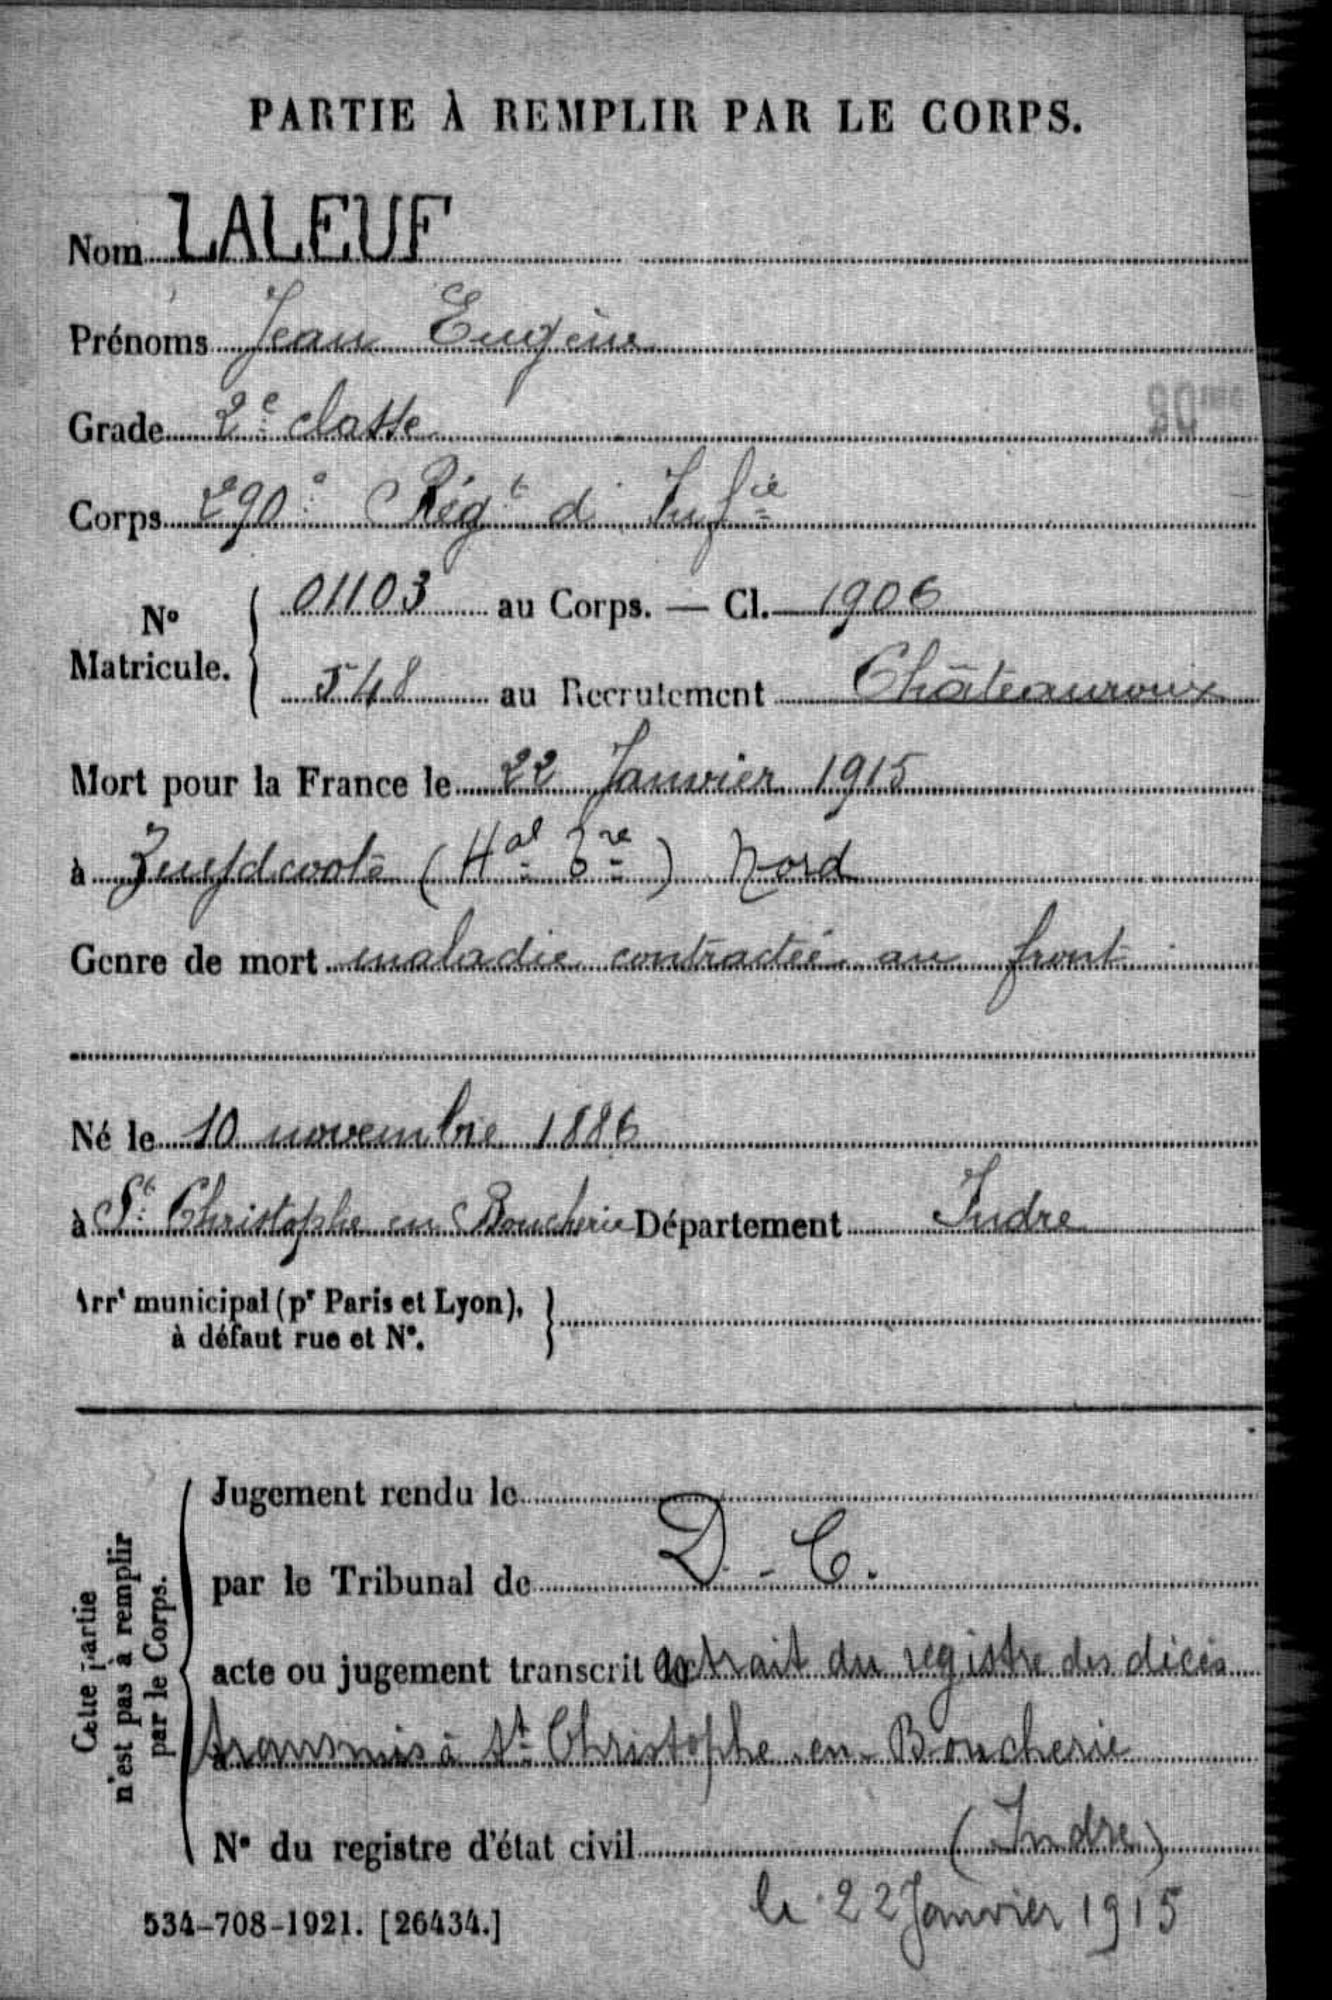 PARTIE À REMPLIR PAR LE CORPS.
Nom LALEUF
Prénoms Jean Eugène
Grade 2e classe
20me
Corps 290e Régt d' Infie
No Matricule. 01103 au Corps. — Cl. 1906
548 au Recrutement Châteauroux
Mort pour la France le 22 Janvier 1915
à Zuydcoote (Hal Tre) Nord
Genre de mort maladie contractée au front
Né le 10 novembre 1886
à St Christophe en Boucherie Département Indre
Arrt municipal (pr Paris et Lyon),
à défaut rue et No.
Cette partie
n'est pas à remplir
par le Corps.
Jugement rendu le
par le Tribunal de D. - C.
acte ou jugement transcrit le extrait du registre des décès
à transmis à St Christophe en Boucherie
No du registre d'état civil (Indre)
534-708-1921. [26434.]
le 22 Janvier 1915